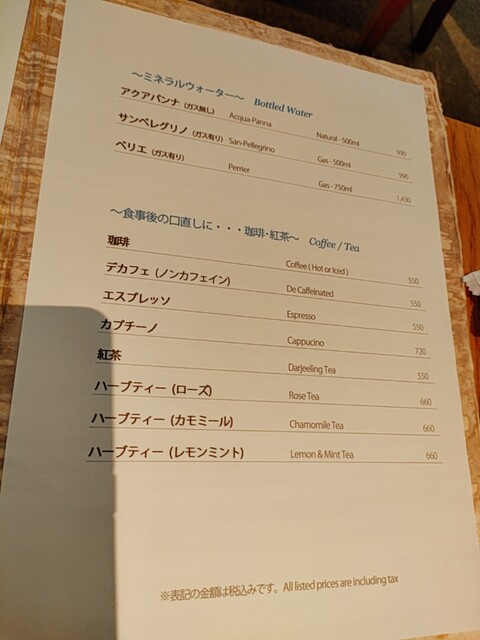 ～ミネラルウォーター～ Bottled Water
アクアパンナ (ガス無し) Acqua-Panna Natural - 500ml 990
サンペレグリノ (ガス有り) San-Pellegrino Gas - 500ml 990
ペリエ (ガス有り) Perrier Gas - 750ml 1,430
～食事後の口直しに・・・珈琲・紅茶～ Coffee / Tea
珈琲 Coffee ( Hot or Iced ) 550
デカフェ (ノンカフェイン) De Caffeinated 550
エスプレッソ Espresso 550
カプチーノ Cappucino 720
紅茶 Darjeeling Tea 550
ハーブティー (ローズ) Rose Tea 660
ハーブティー (カモミール) Chamomile Tea 660
ハーブティー (レモンミント) Lemon & Mint Tea 660
※表記の金額は税込みです。All listed prices are including tax